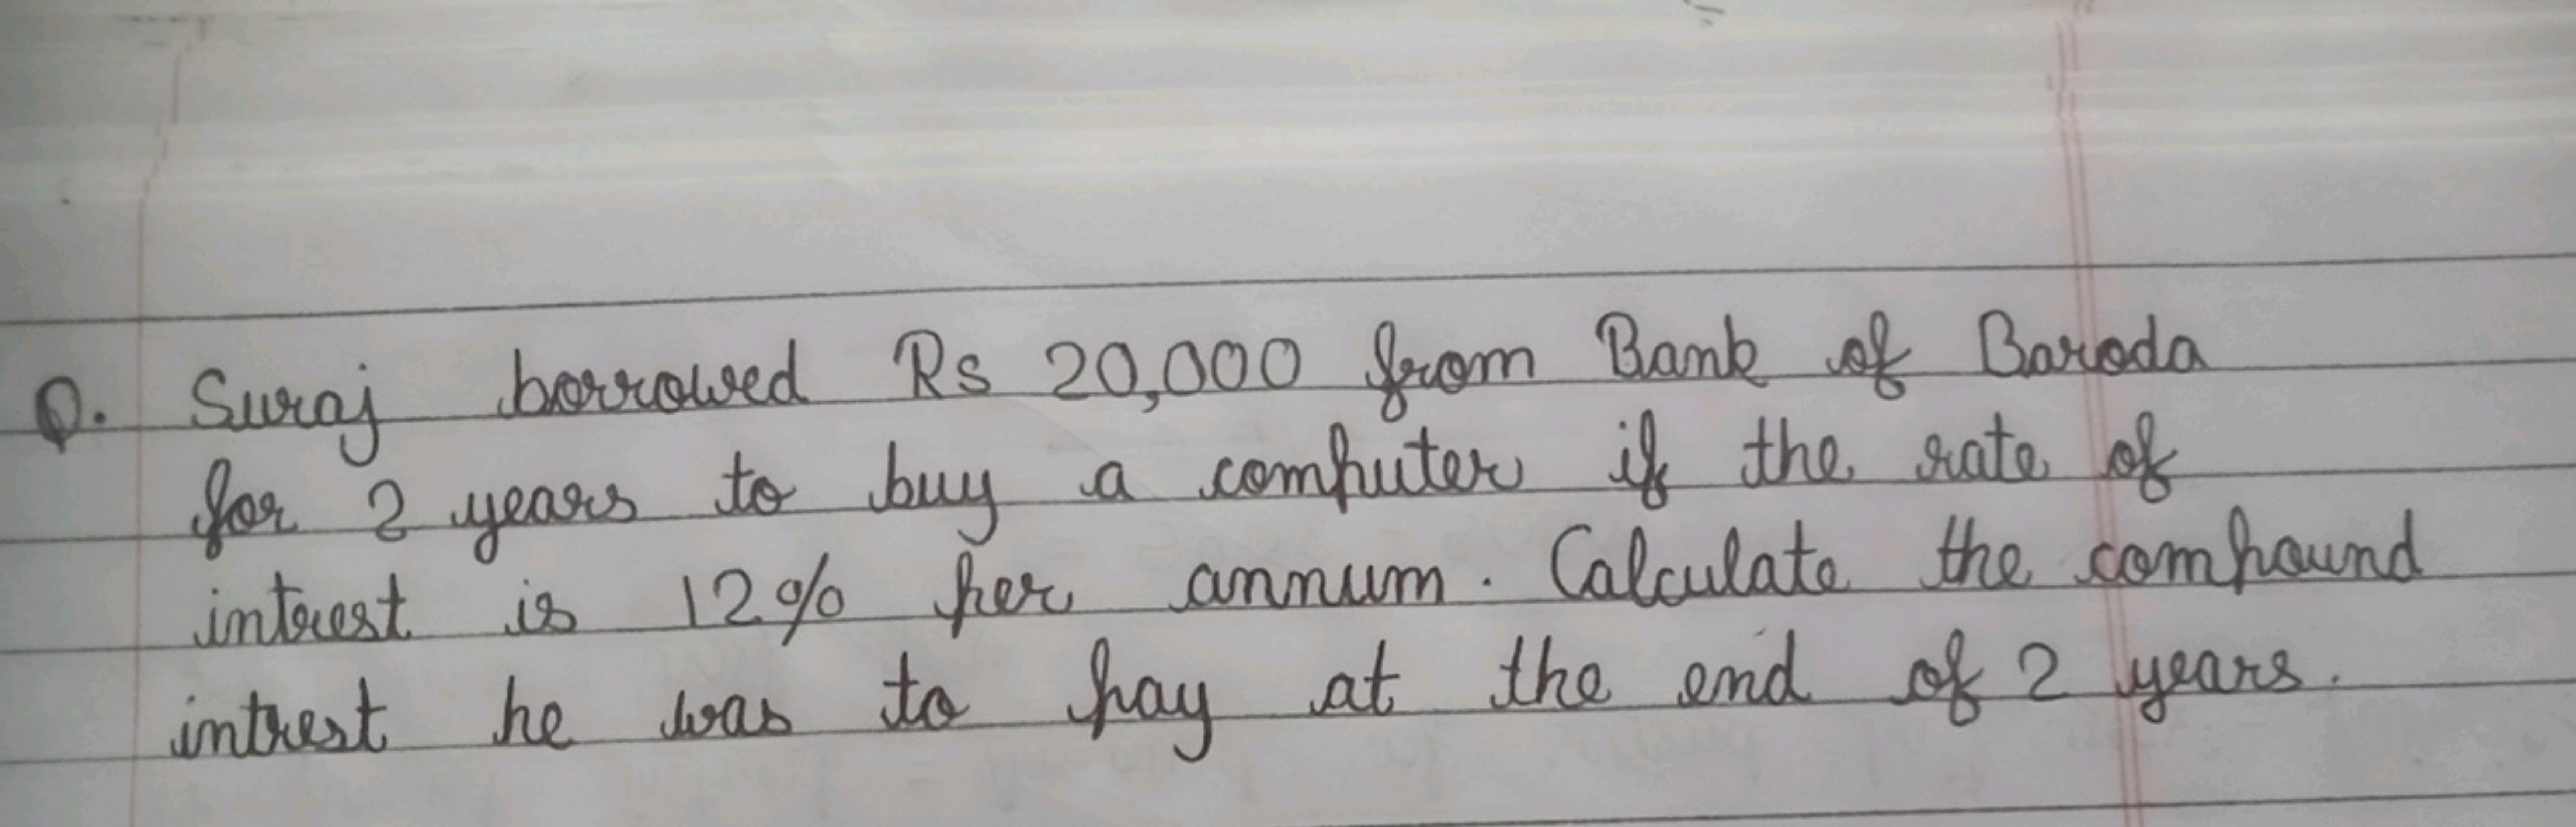 Q. Suraj borrowed Rs 20,000 from Bank of Baroda
for 2 years to buy a computer if the rate of
intrest is 12% per annum. Calculate the compound
intrest he was to pay at the end of 2 years.